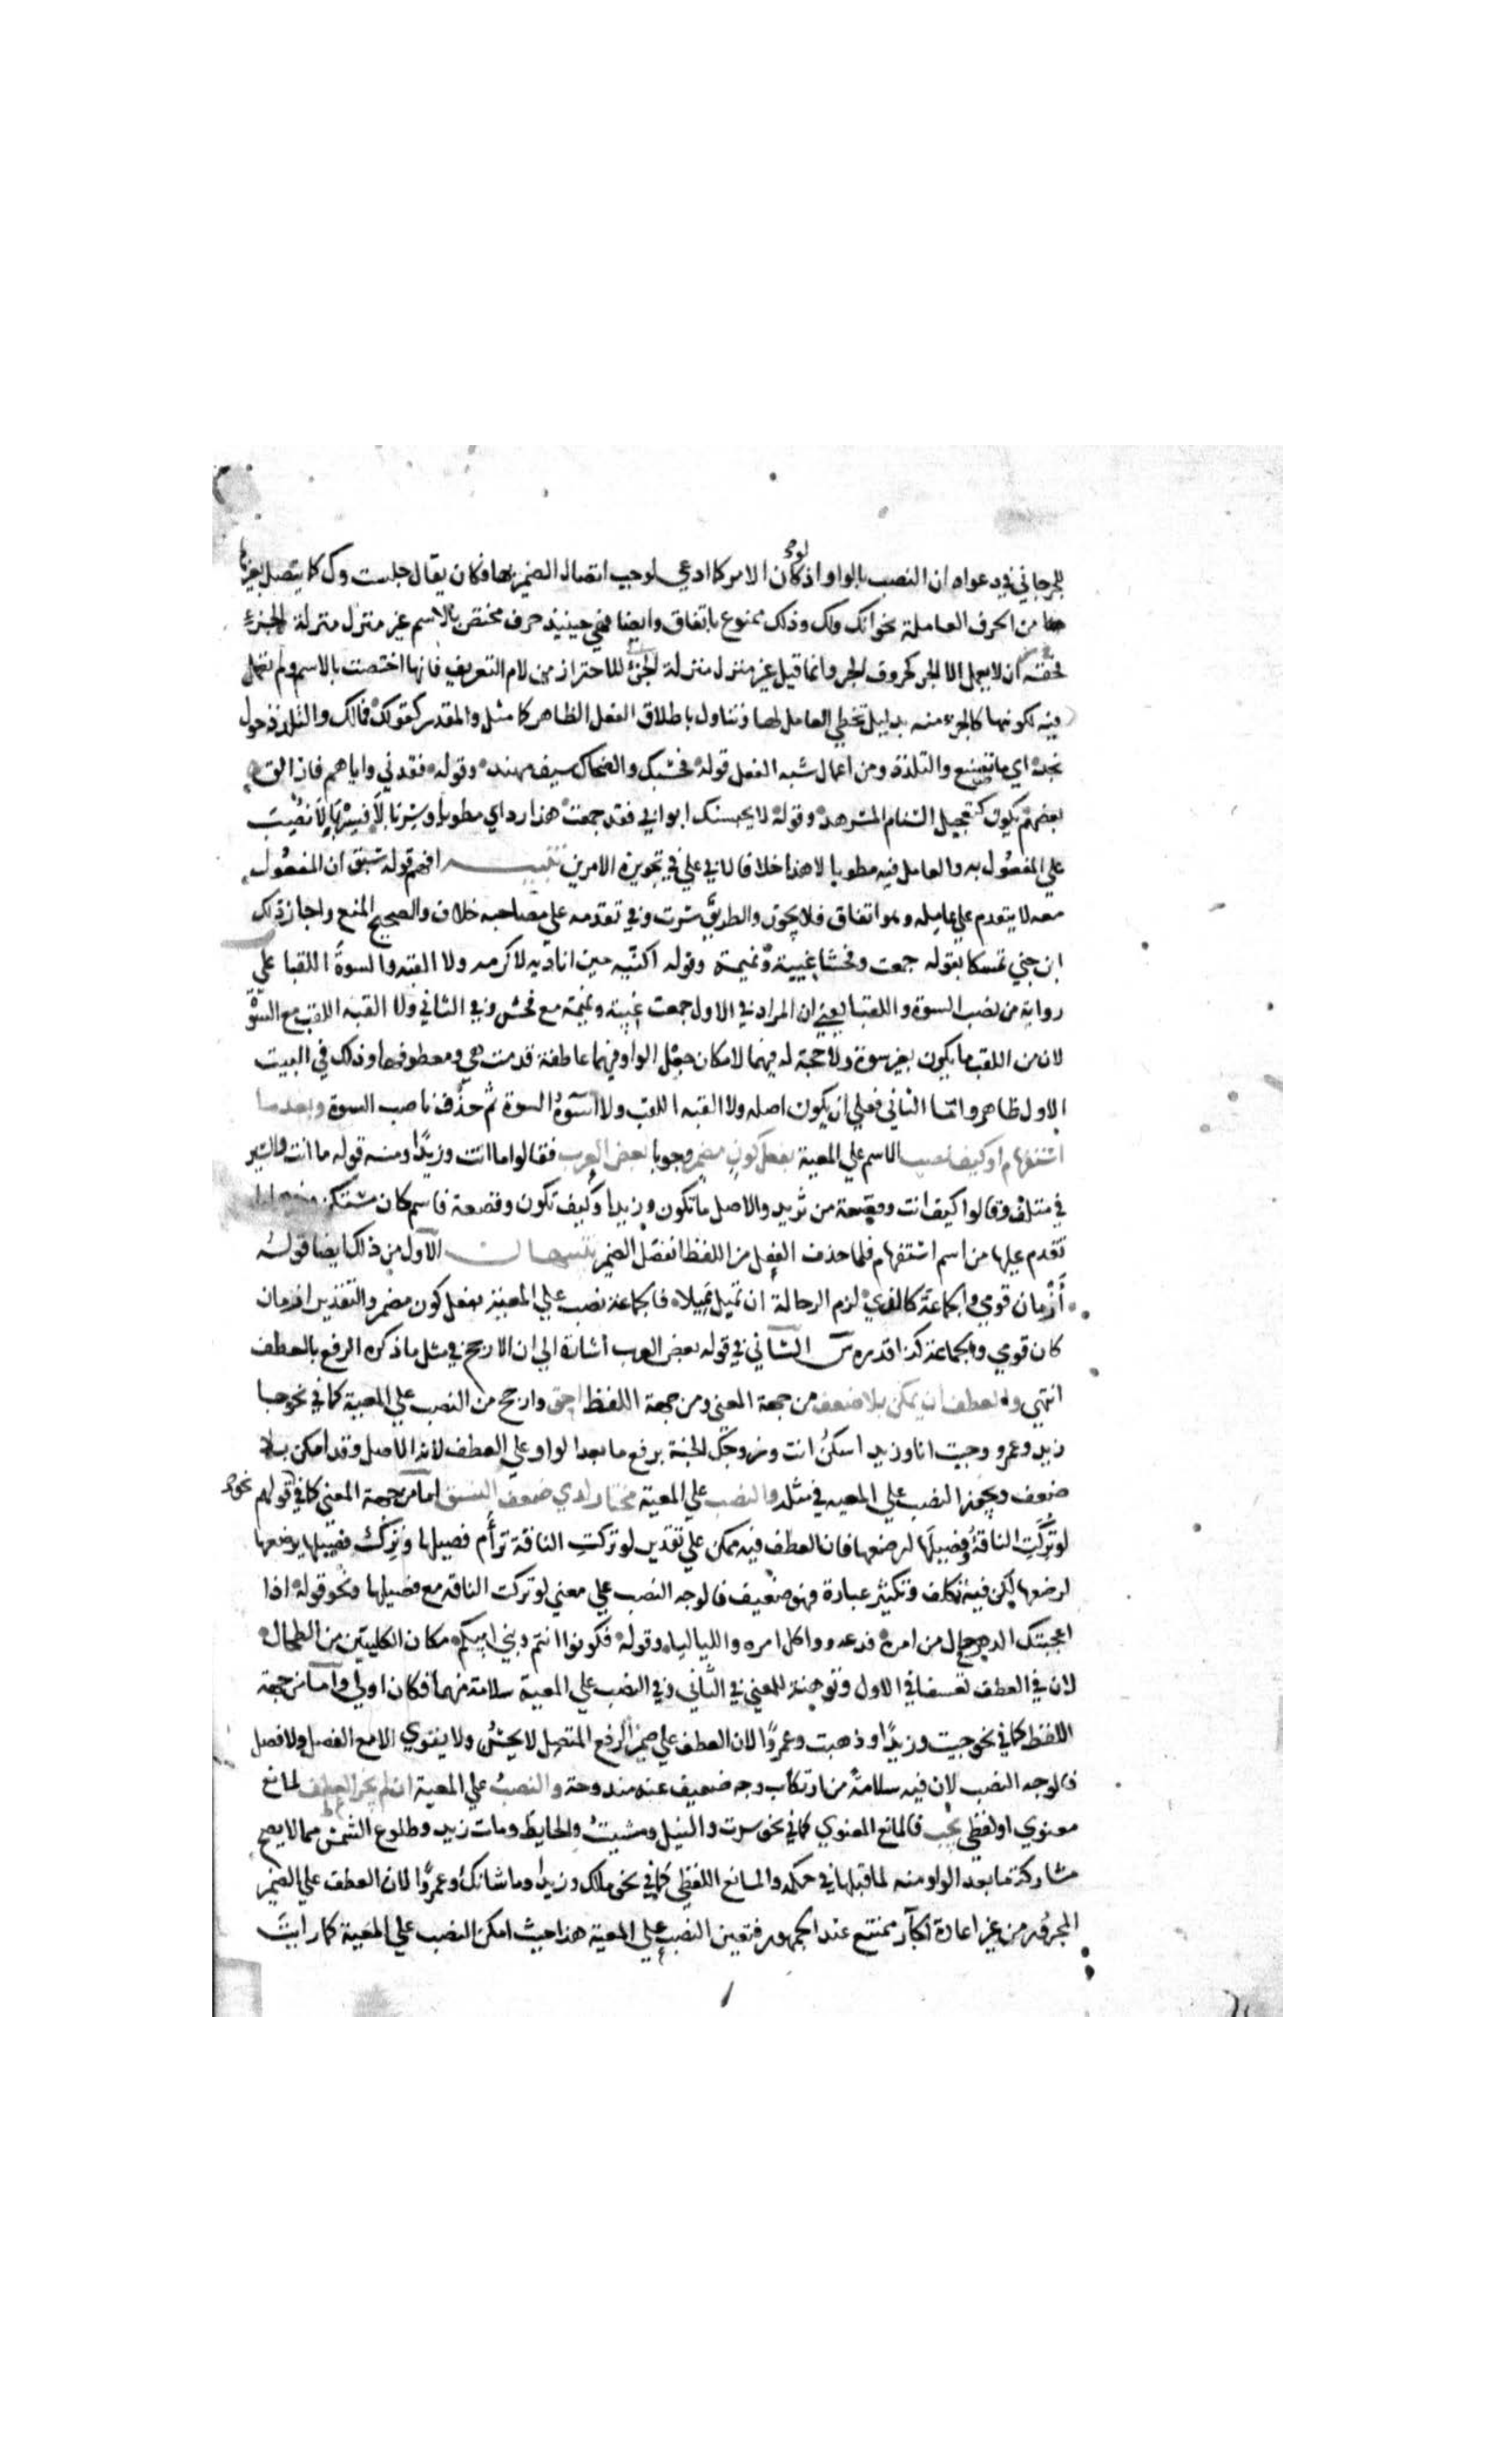 للجرجاني في دعواه ان النصب بالواو اذ لو كان الامر كما ادعي لوجب اتصال الضمير بها فكان يقال جلست وك كما يتصل بغيرها
من الحرف العاملة نحو انك ولك وذلك ممنوع باتفاق وايضا فهي حينيذ حرف مختص بالاسم غير منزل منزلة الجزء
فحقه ان لا يعمل الا الجر كحروف الجر وانما قيل غير منزل منزلة الجزء للاحتراز من لام التعريف فانها اختصت بالاسم ولم تعمل
فيه لكونها كالجزء منه بدليل تخطي العامل لها وتناول باطلاق الفعل الظاهر كما مثل والمقدر كقولك فمالك والتلدد حول
نجد اي ما تصنع والتلدد ومن اعمال شبه الفعل قوله فحسبك والضحاك سيف مهند وقوله فقدني واياهم فان الق
بعضهم يكون كتعجيل السنام المسرهد وقوله لا يحبسنك ابوابي فقد جمعت هذا ردائي مطويا وسربالا فسربالا نصب
علي المفعول به والعامل فيه مطويا لا هذا خلافا لابي علي في تجويزه الامرين تنبيه افهم قوله سبق ان المفعول
معه لا يتقدم علي عامله وهو اتفاق فلا يجوز والطريق سرت وفي تقدمه علي مصاحبه خلاف والصحيح المنع واجاز ذلك
ابن جني تمسكا بقوله جمعت وفحشا غيبة ونميمة وقوله اكنيه حين اناديه لاكرمه ولا القبه والسوة اللقبا علي
رواية من نصب السوة واللقبا يعني ان المراد في الاول جمعت غيبة ونميمة مع فحش وفي الثاني ولا القبه اللقب مع السوة
لان من اللقب ما يكون بغير سوة ولا حجة له فيهما لامكان جعل الواو فيهما عاطفة قدمت هي ومعطوفها وذلك في البيت
الاول ظاهر واما الثاني فعلي ان يكون اصله ولا القبه اللقب ولا اسوه السوة ثم حذف ناصب السوة وبعد ما
استفهام او كيف نصب الاسم علي المعية بفعل كون مضمر وجوبا بعض العرب فقالوا ما انت وزيدا ومنه قوله ما انت والسير
في متلف وقالوا كيف انت وقصعة من ثريد والاصل ما تكون وزيدا وكيف تكون وقصعة فاسم كان مستكن
تقدم عليها من اسم استفهام فلما حذف الفعل من اللفظ انفصل الضمير تنبيهان الاول من ذلك ايضا قوله
أزمان قومي والجماعة كالذي لزم الرحالة ان تميل مميلا فالجماعة نصب علي المعية بفعل كون مضمر والتقدير ازمان
كان قومي والجماعة كذا قدره س الثاني في قوله بعض العرب اشارة الي ان الارجح في مثل ما ذكره الرفع بالعطف
انتهي والعطف ان يمكن بلا ضعف من جهة المعني ومن جهة اللفظ احق وارجح من النصب علي المعية كما في نحو جا
زيد وعمرو وجيت انا وزيد اسكن انت وزوجك الجنة برفع ما بعد الواو علي العطف لانه الاصل وقد امكن بلا
ضعف ويجوز النصب علي المعيه في مثله والنصب علي المعية مختار لدي ضعف النسق اما من جهة المعني كما في قولهم نحو
لو تركت الناقة وفصيلها لرضعها فان العطف فيه ممكن علي تقدير لو تركت الناقة ترأم فصيلها وترك فصيلها يرضعها
لرضعها لكن فيه تكلف وتكثير عبارة فهو ضعيف فالوجه النصب علي معني لو تركت الناقه مع فصيلها ونحو قوله اذا
اعجبتك الدهر حال من امرء فدعه وواكل امره واللياليا وقوله فكونوا انتم وبني ابيكم مكان الكليتين من الطحال
لان في العطف تعسفا في الاول وتوهينا للمعني في الثاني وفي النصب علي المعية سلامة منهما فكان اولي واما من جهة
اللفظ كما في نحو جيت وزيدا وذهبت وعمرا لان العطف علي ضمير الرفع المتصل لا يحسن ولا يقوي الا مع الفصل ولا فصل
فالوجه النصب لان فيه سلامة من ارتكاب وجه ضعيف عنه مندوحة والنصب علي المعية ان لم يجز العطف لمانع
معنوي او لفظي يجب فالمانع المعنوي كما في نحو سرت والنيل ومشيت والحايط ومات زيد وطلوع الشمس مما لا يصح
مشاركة ما بعد الواو منه لما قبلها في حكمه والمانع اللفظي كما في نحو مالك وزيدا وما شانك وعمرا لان العطف علي الضمير
المجرور من غير اعادة الجار ممتنع عند الجمهور فتعين النصب علي المعية هذا حيث امكن النصب علي المعية كما رايت